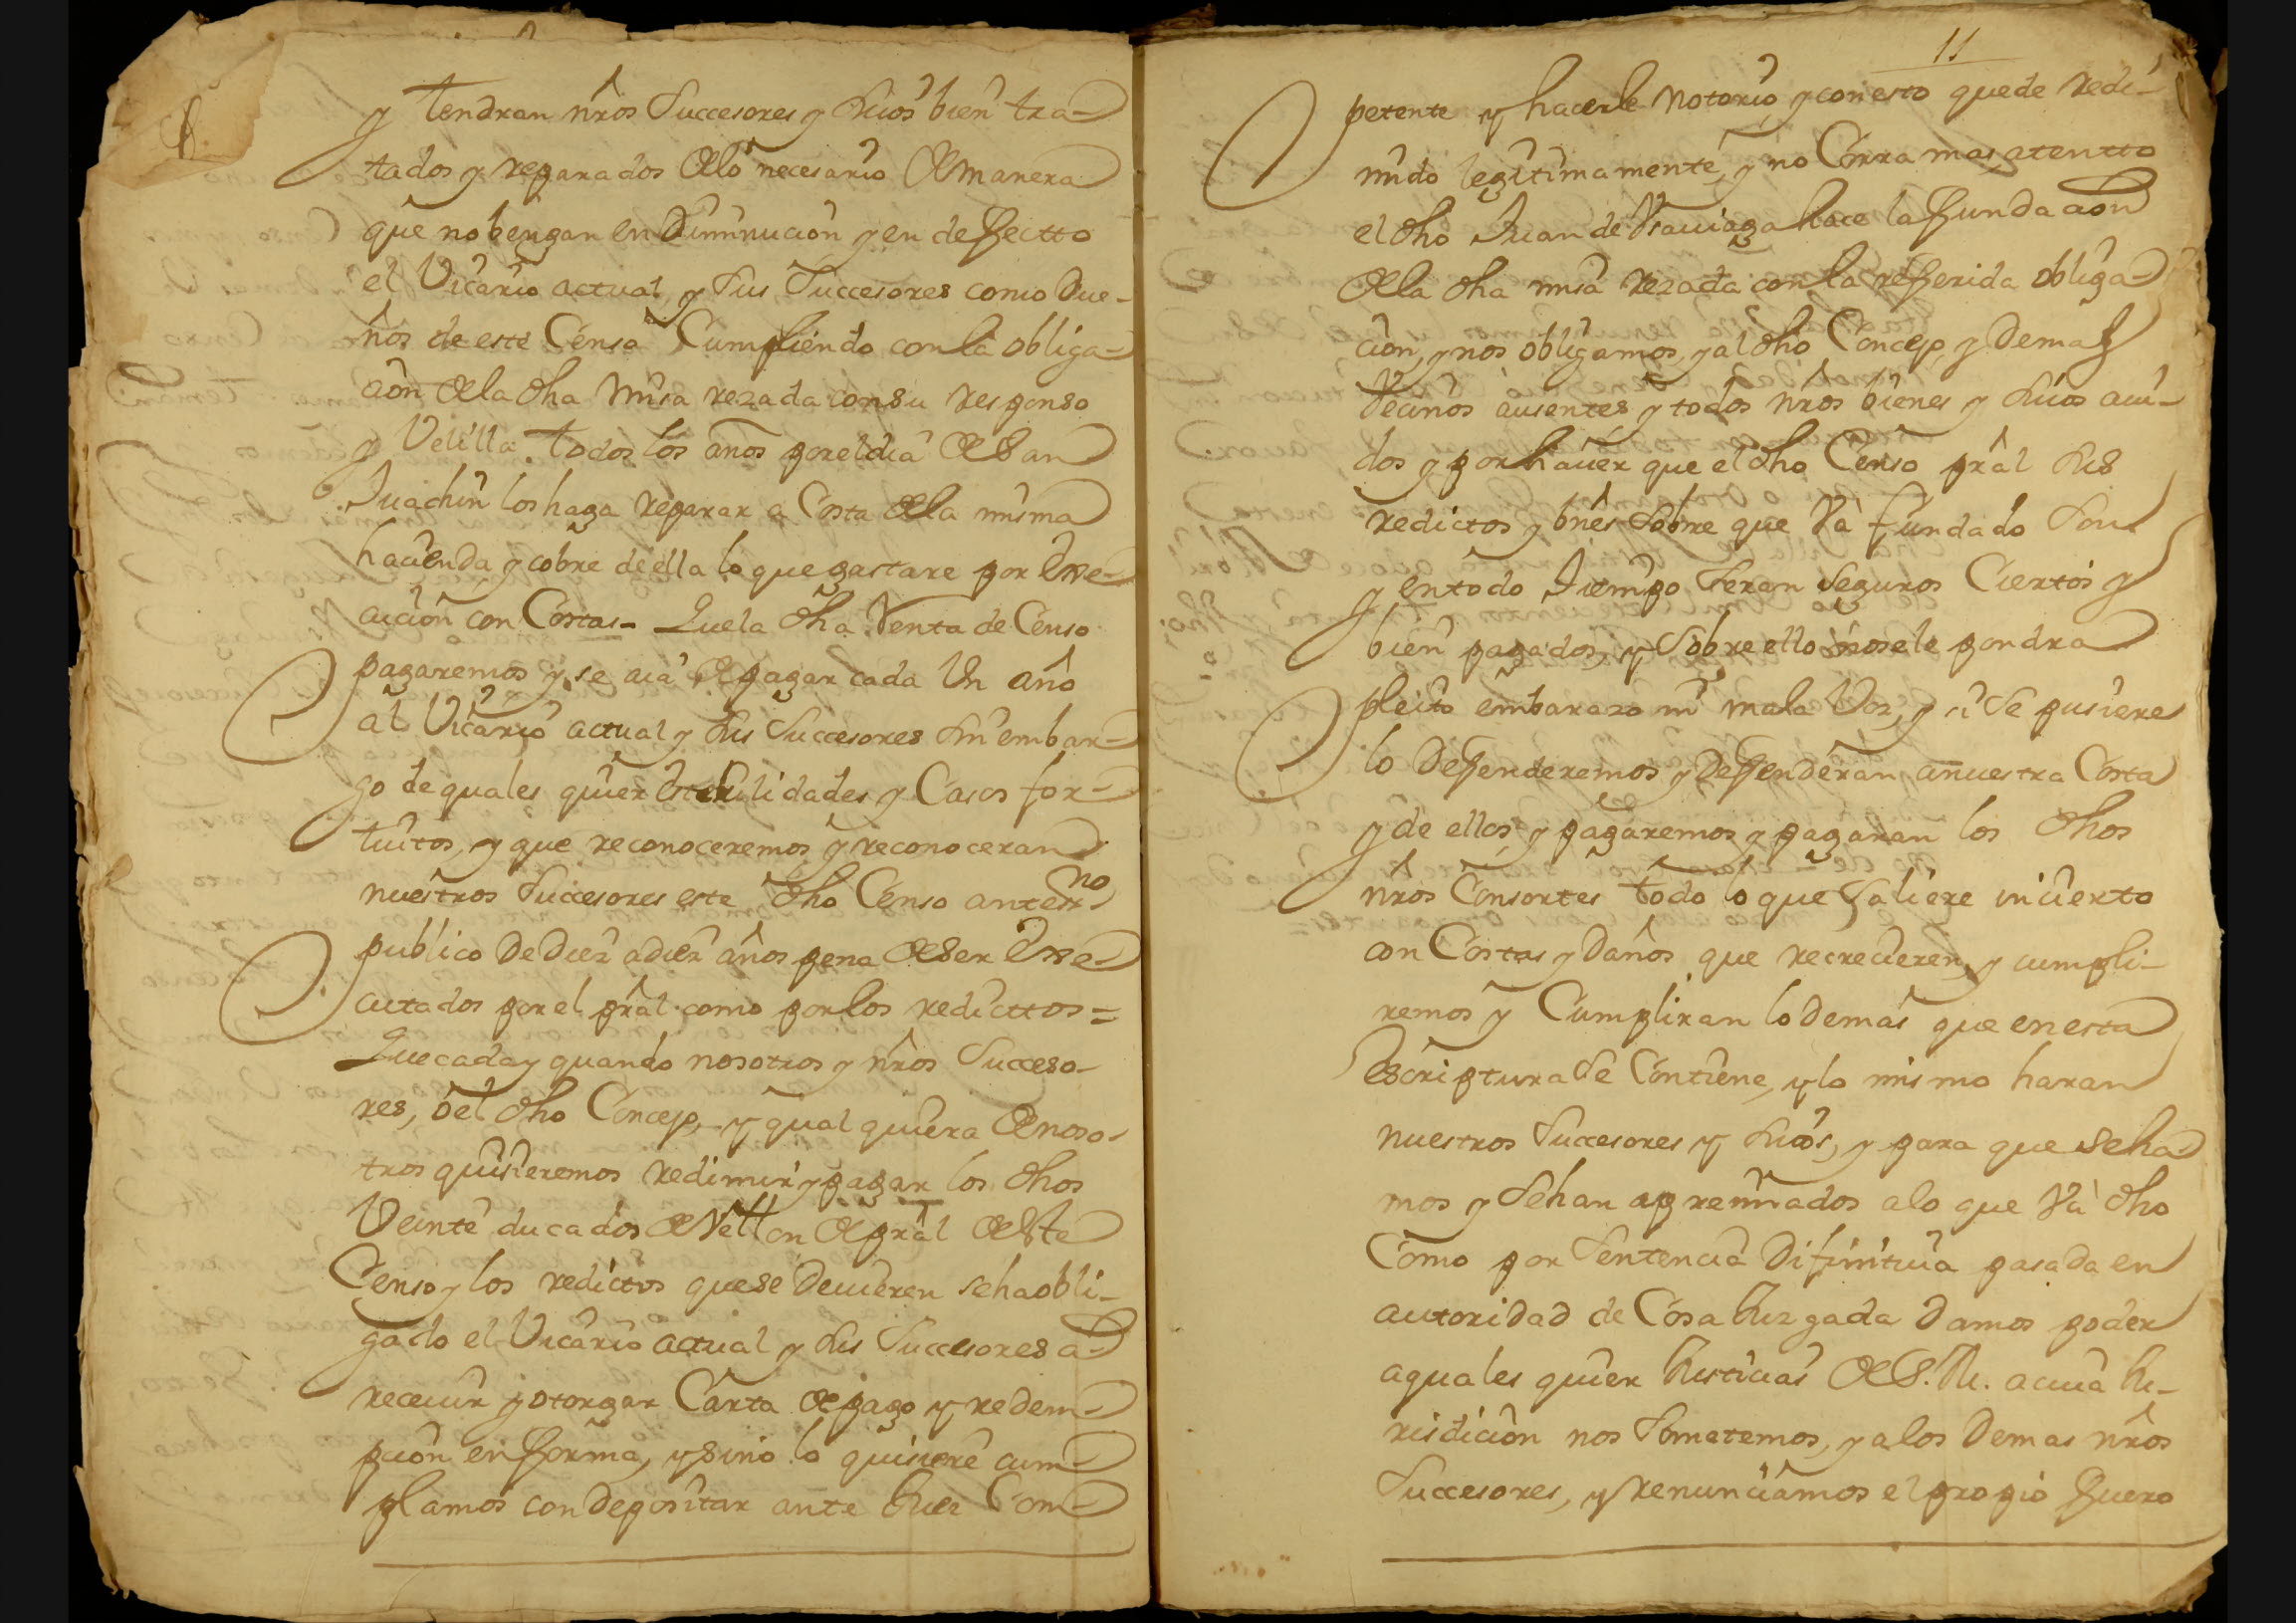 y tendran nros Successores y hijos bien tra-
tados y reparados de lo necesario de manera
que no bengan en Diminucion y en deffectto
el Vicario actual y sus Successores como Due-
ños de este Censo Cumpliendo con la obliga-
cion de la dha Misa rezada con su responso
y Velilla todos los años por el dia de San
Juachin los haga reparar a Costa de la misma
hacienda y cobre de ella lo que gastare por Exe-
cucion con Costas- Que la dha Renta de Censo
pagaremos y se a de pagar cada Un año
al Vicario actual y sus Successores sin embar-
go de quales quier Esterilidades y Casos for-
tuitos, y que reconoceremos y reconoceran
nuestros Successores este dho Censo ante ssno
publico De Diez a diez años pena de ser Exe-
cutados por el pral como por los redicttos=
Que cada y quando nosotros y nros Succeso-
res, ó el dho Concejo, y qual quiera de noso-
tros quisieremos redimir y pagar los dhos
Veinte ducados de Vellon de pral de este
Censo y los redictos que se Devieren se ha obli-
gado el Vicario actual y sus Successores a
recevir y otorgar Carta de pago y redem-
pcion en fforma, y si no lo quisiere cum-
plamos con Depositar ante Juez Com-
11
petente y hacerle Notorio, y con esto quede redi-
mido legitimamente, y no Corra mas atentto
el dho Juan de hace la ffundacion
de la dha misa rezada con la refferida obliga-
cion, y nos obligamos, y al dho Concejo, y Demas
Vecinos ausentes, y todos nros bienes y hijos avi-
dos y por haver que el dho Censo pral sus
redictos y bnes sobre que Và fundado son
y en todo Tiempo seran seguros Ciertos y
bien pagados, y sobre ello no se le pondra
pleito embarazo ni mala Voz, y si se pusiere
lo Deffenderemos y Deffenderan a nuestra Costa
y de ellos, y pagaremos y pagaran los dhos
nros Consortes todo lo que saliere incierto
con Costas y Daños que recrecieren, y cumpli-
remos y Cumpliran lo Demas que en esta
Escriptura se Contiene, y lo mismo haran
nuestros Successores y hijos, y para que seha-
mos y sehan apremiados a lo que Và dho
Como por Sentencia Difinitiva pasada en
autoridad de Cosa Juzgada Damos poder
a quales quier Justicias de S. M. a cuia Ju-
risdicion nos Sometemos, y a los Demas nros
Successores, y renunciamos el propio ffuero